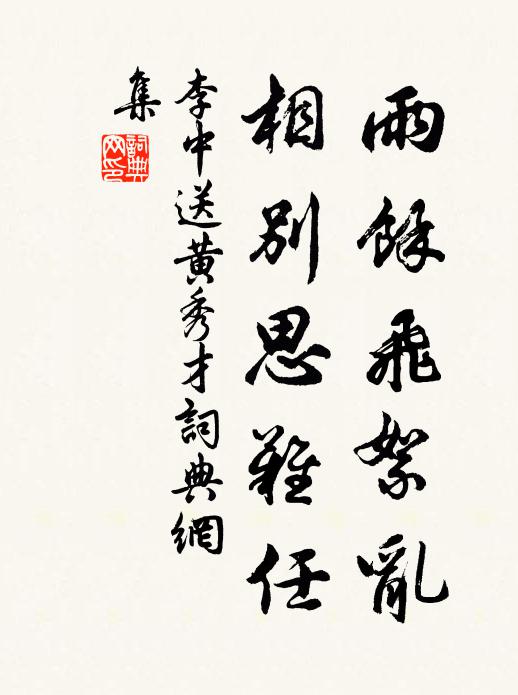 雨餘飛絮亂
相別思難任
李中送黃秀才詞典網
集
詞典
网印